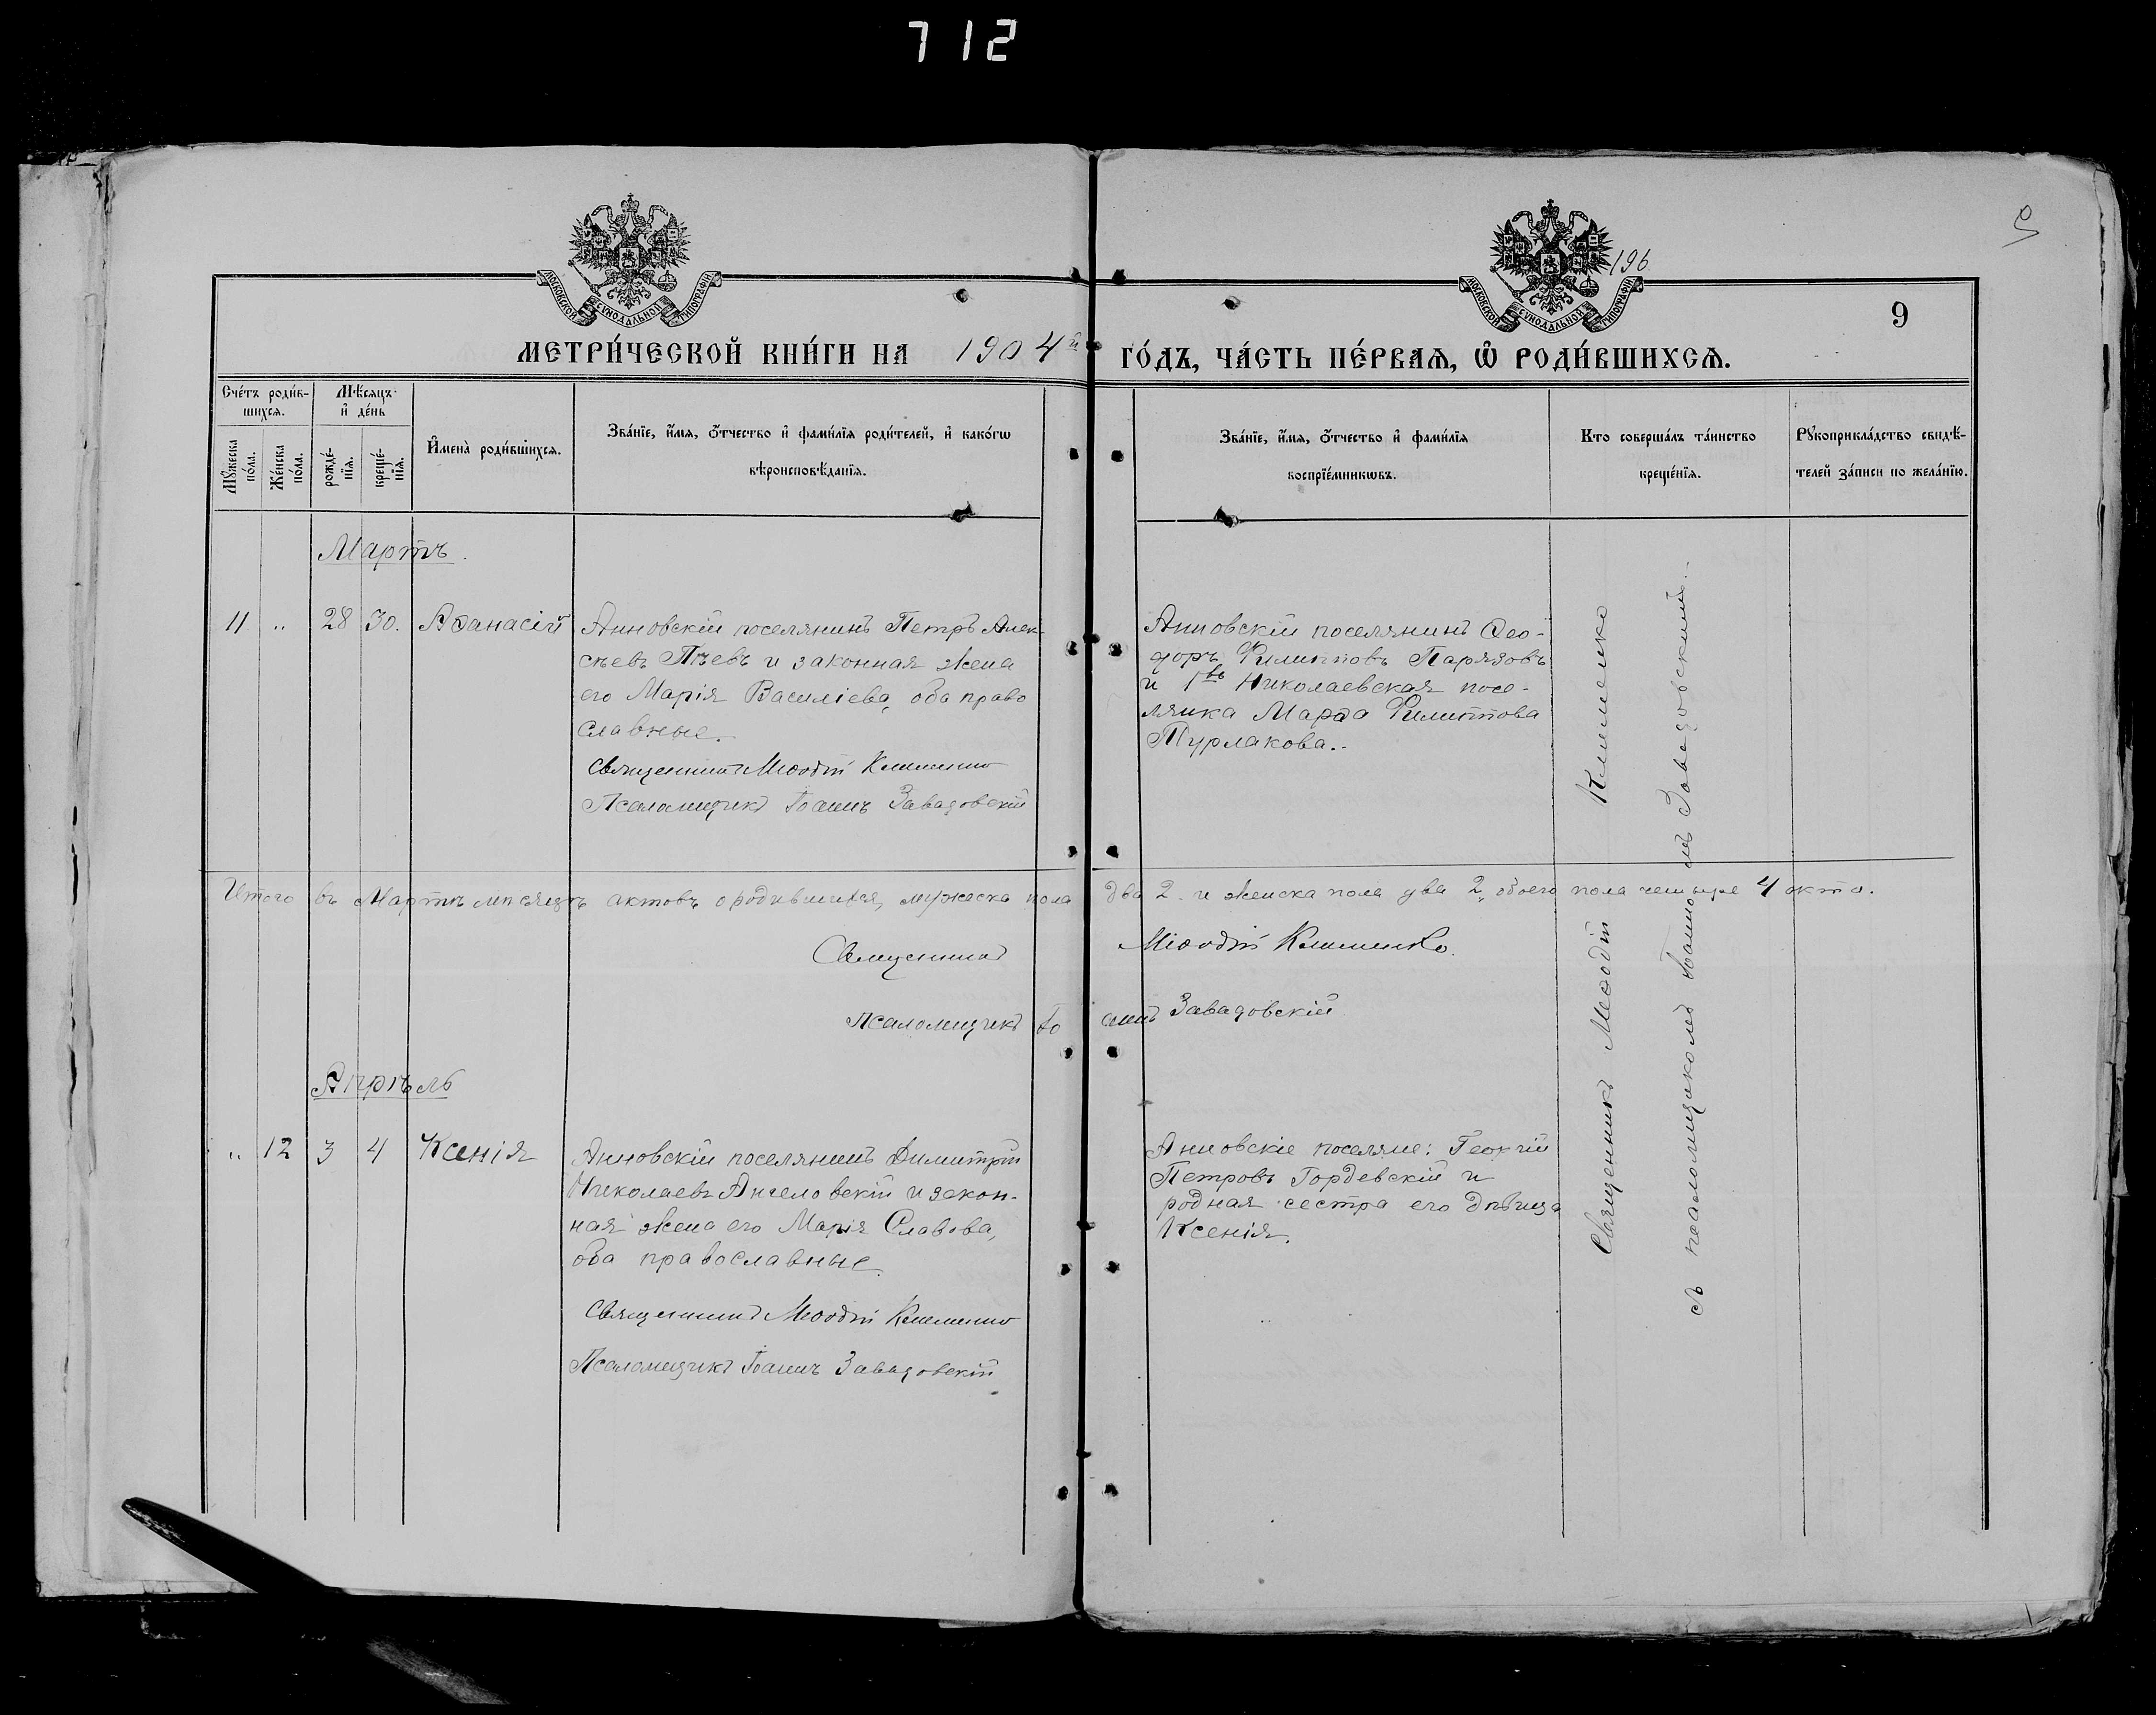 712
МОСКОВСКОЙ СУНОДАЛЬНОЙ ТИПОГРАФІИ
МОСКОВСКОЙ СУНОДАЛЬНОЙ ТИПОГРАФІИ
196
9
МЕТРИ́ЧЕСКОЙ КНИ́ГИ НА 1904й ГО́ДЪ, ЧА́СТЬ ПЕ́РВАѦ, Ѽ РОДИ́ВШИХСѦ.
Сче́тъ роди́в-
шихсѧ.
Мѣ́сѧцъ
и҆ де́нь
Мꙋ́жеска
по́ла.
Же́нска
по́ла.
рожде́-
нїѧ.
креще́-
нїѧ.
И҆мена̀ роди́вшихсѧ.
Зва́нїе, и҆́мѧ, ѻ҆́тчество и҆ фами́лїѧ роди́телей, и҆ како́гѡ
вѣроисповѣ́данїѧ.
Зва́нїе, и҆́мѧ, ѻ҆́тчество и҆ фами́лїѧ
воспрїе́мникѡвъ.
Кто соверша́лъ та́инство
креще́нїѧ.
Рꙋкоприкла́дство свидѣ́-
телей за́писи по жела́нїю.
Мартъ.
11 „ 28 30. Аѳанасій
Анновскій поселянинъ Петръ Алек-
сѣевъ Пѣевъ и законная жена
его Марія Василіева, оба право
славные.
Священникъ Меѳодій Клименко
Псаломщикъ Іоаннъ Завадовскій
Анновскій поселянинъ Ѳео-
доръ Филипповъ Парязовъ
и 1во Николаевская посе-
лянка Марѳа Филиппова
Турлакова..
Итого въ Мартѣ мѣсяцѣ актовъ о родившихся, мужеска пола два 2. и женска пола два 2, обоего пола четыре 4 акта.
Священникъ Меѳодій Клименко.
Псаломщикъ Іоаннъ Завадовскій
Апрѣль
„ 12 3 4 Ксенія
Анновскій поселянинъ Димитрій
Николаевъ Ангеловскій и закон-
ная жена его Марія Славова,
оба православные.
Священникъ Меѳодій Клименко
Псаломщикъ Іоаннъ Завадовскій
Анновскіе поселяне: Георгій
Петровъ Гордевскій и
родная сестра его дѣвица
Ксенія.
Священникъ Меѳодій Клименко
съ псаломщикомъ Іоанномъ Завадовскимъ..